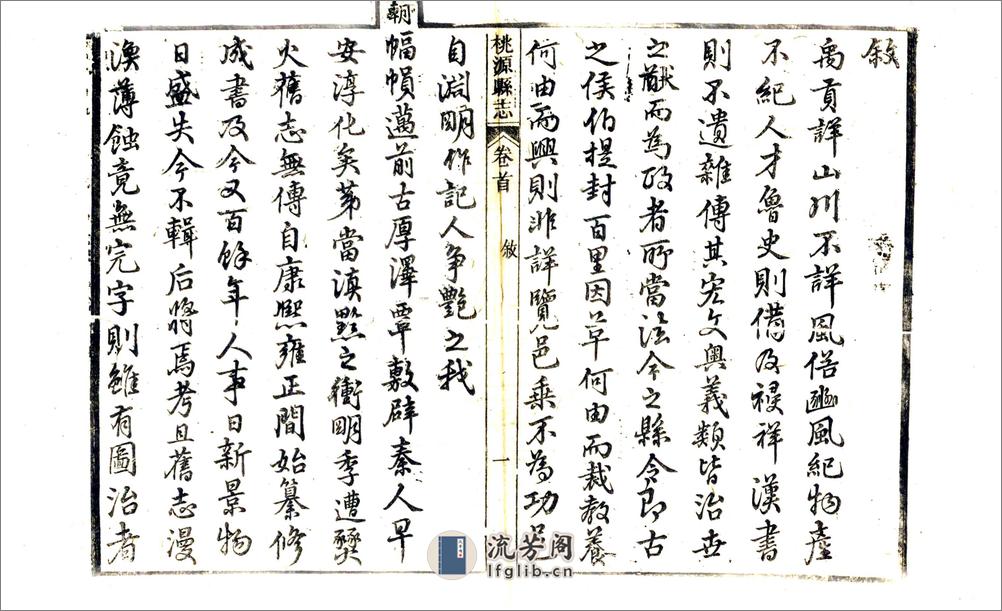 敘
禹貢詳山川不詳風俗豳風紀物產
不紀人才魯史則備及祲祥漢書
則不遺雜傳其宏文奧義類皆治世
之猷而為政者所當法今之縣令即古
之侯伯提封百里因革何由而裁教養
何由而興則非詳覽邑乘不為功
桃源縣志 卷首 敘 一
自淵明作記人爭艷之我
朝幅幀邁前古厚澤覃敷辟秦人早
安淳化矣第當滇黔之衝明季遭燹
火舊志無傳自康熙雍正間始纂修
成書及今又百餘年人事日新景物
日盛失今不輯后將焉考且舊志漫
漶薄蝕竟無完字則雖有圖治者
流芳阁
lfglib.cn